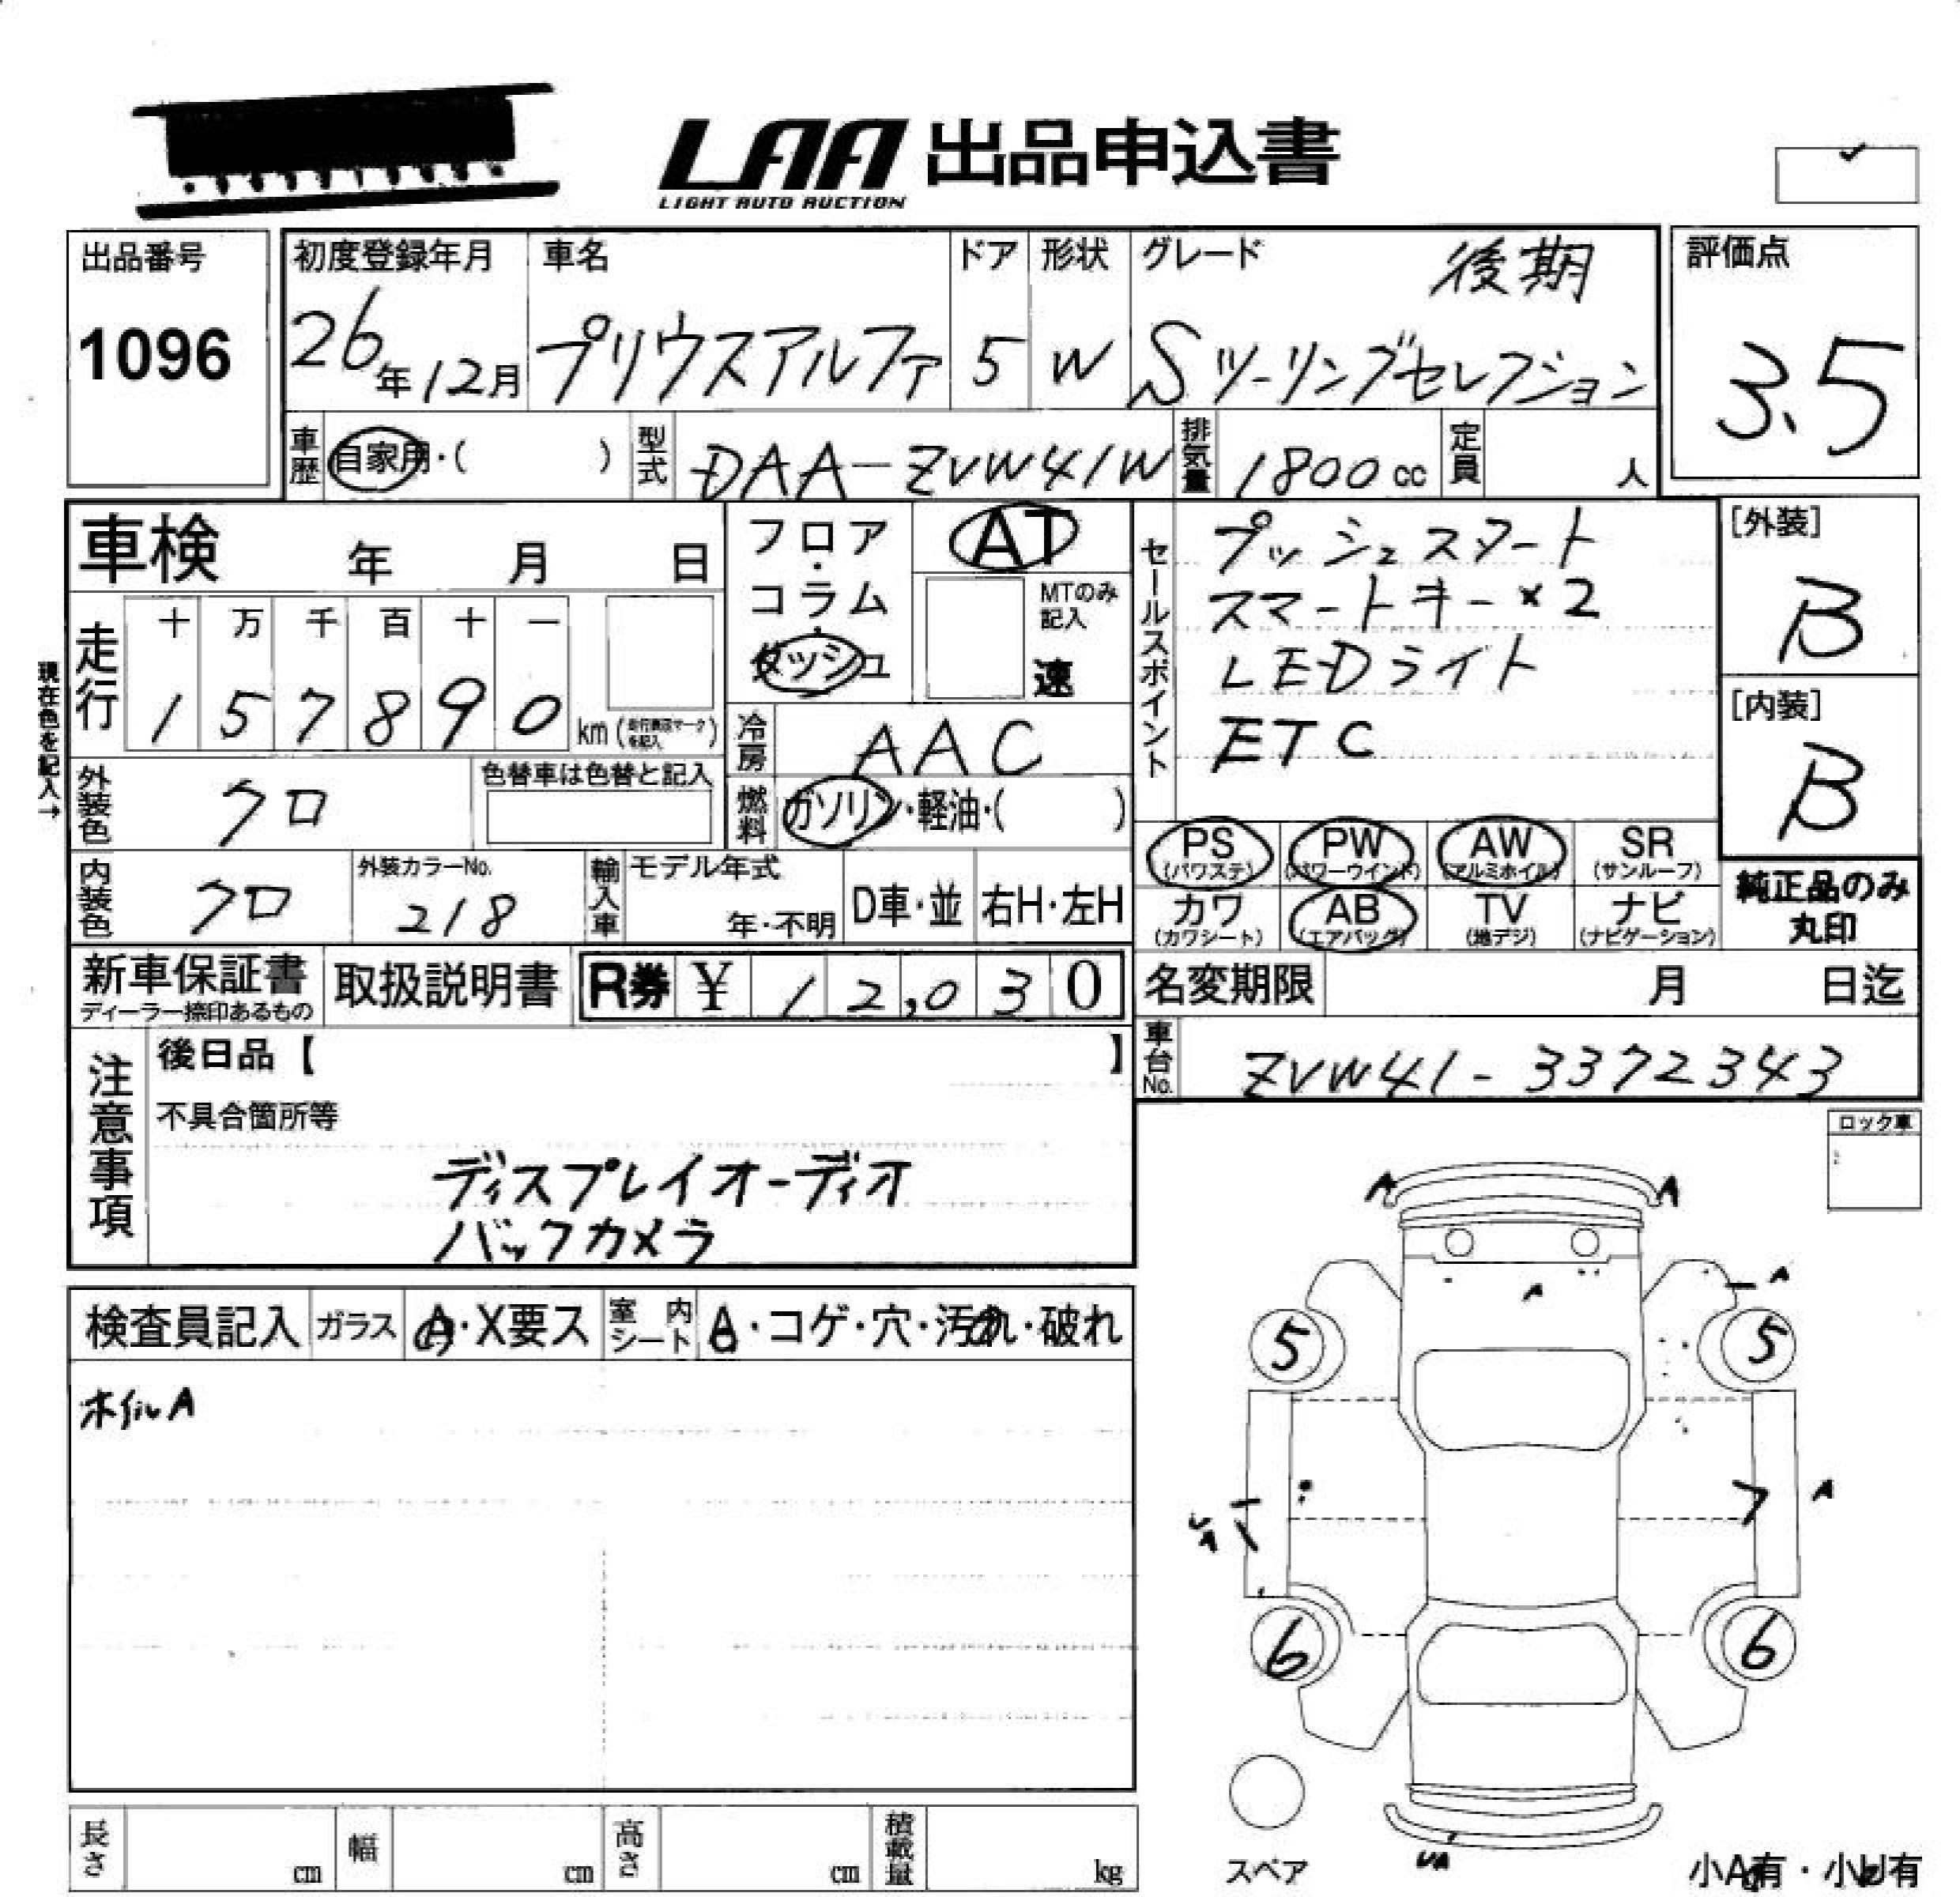 LAA 出品申込書
LIGHT AUTO AUCTION
出品番号
1096
初度登録年月
26年12月
車名
プリウスアルファ
ドア
5
形状
W
グレード 後期
Sツーリングセレクション
評価点
3.5
車歴 自家用・( )
型式 DAA-ZVW41W
排気量 1800cc
定員 人
車検 年 月 日
フロア・コラム・ダッシュ
AT
MTのみ記入
速
セールスポイント
プッシュスタート
スマートキー×2
LEDライト
ETC
[外装]
B
[内装]
B
現在色を記入→
走行
十 万 千 百 十 一
1 5 7 8 9 0 km
冷房 AAC
外装色 クロ
色替車は色替と記入
燃料 ガソリン・軽油・( )
PS (パワステ)
PW (パワーウインド)
AW (アルミホイル)
SR (サンルーフ)
カワ (カワシート)
AB (エアバッグ)
TV (地デジ)
ナビ (ナビゲーション)
純正品のみ
丸印
内装色 クロ
外装カラーNo.
218
輸入車
モデル年式
年・不明
D車・並
右H・左H
新車保証書
ディーラー捺印あるもの
取扱説明書
R券 ¥ 12,030
名変期限 月 日迄
車台No. ZVW41-3372343
注意事項
後日品【 】
不具合箇所等
ディスプレイオーディオ
バックカメラ
ロック車
検査員記入
ガラス A・X要ス
室内シート A・コゲ・穴・汚れ・破れ
ホイルA
A A
A A
5 5
A
6 6
UA
スペア
小A有・小U有
長さ cm
幅 cm
高さ cm
積載量 kg